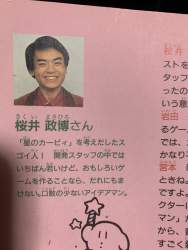 さくい まさひろ
桜井 政博さん
「星のカービィ」を考えだしたス
ゴイ人！ 開発スタッフの中では
いちばん若いけど、おもしろいゲ
ームを作ることなら、だれにもま
けない。口数の少ないアイデアマン。
ストを
スタッフ
ったの
いう意
岩田
るゲー
では、
かなり
宮本
ときね
ですよ
クター
マン」